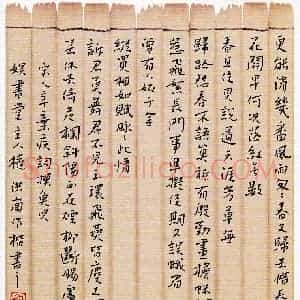 更能消幾番風雨春又歸去惜春
花開早何況落紅數
春且住見說道天涯芳草無
歸路怨春不語算祗有殷勤畫檐蛛
惹飛絮長門事準擬佳期又誤蛾眉
曾有人妒千金
縱買相如賦脈此情
訴君莫舞君不見玉環飛燕皆塵土
苦休去倚危欄斜陽正在煙柳斷腸處
宋人辛棄疾詞摸魚兒
娛書堂主人楊洪